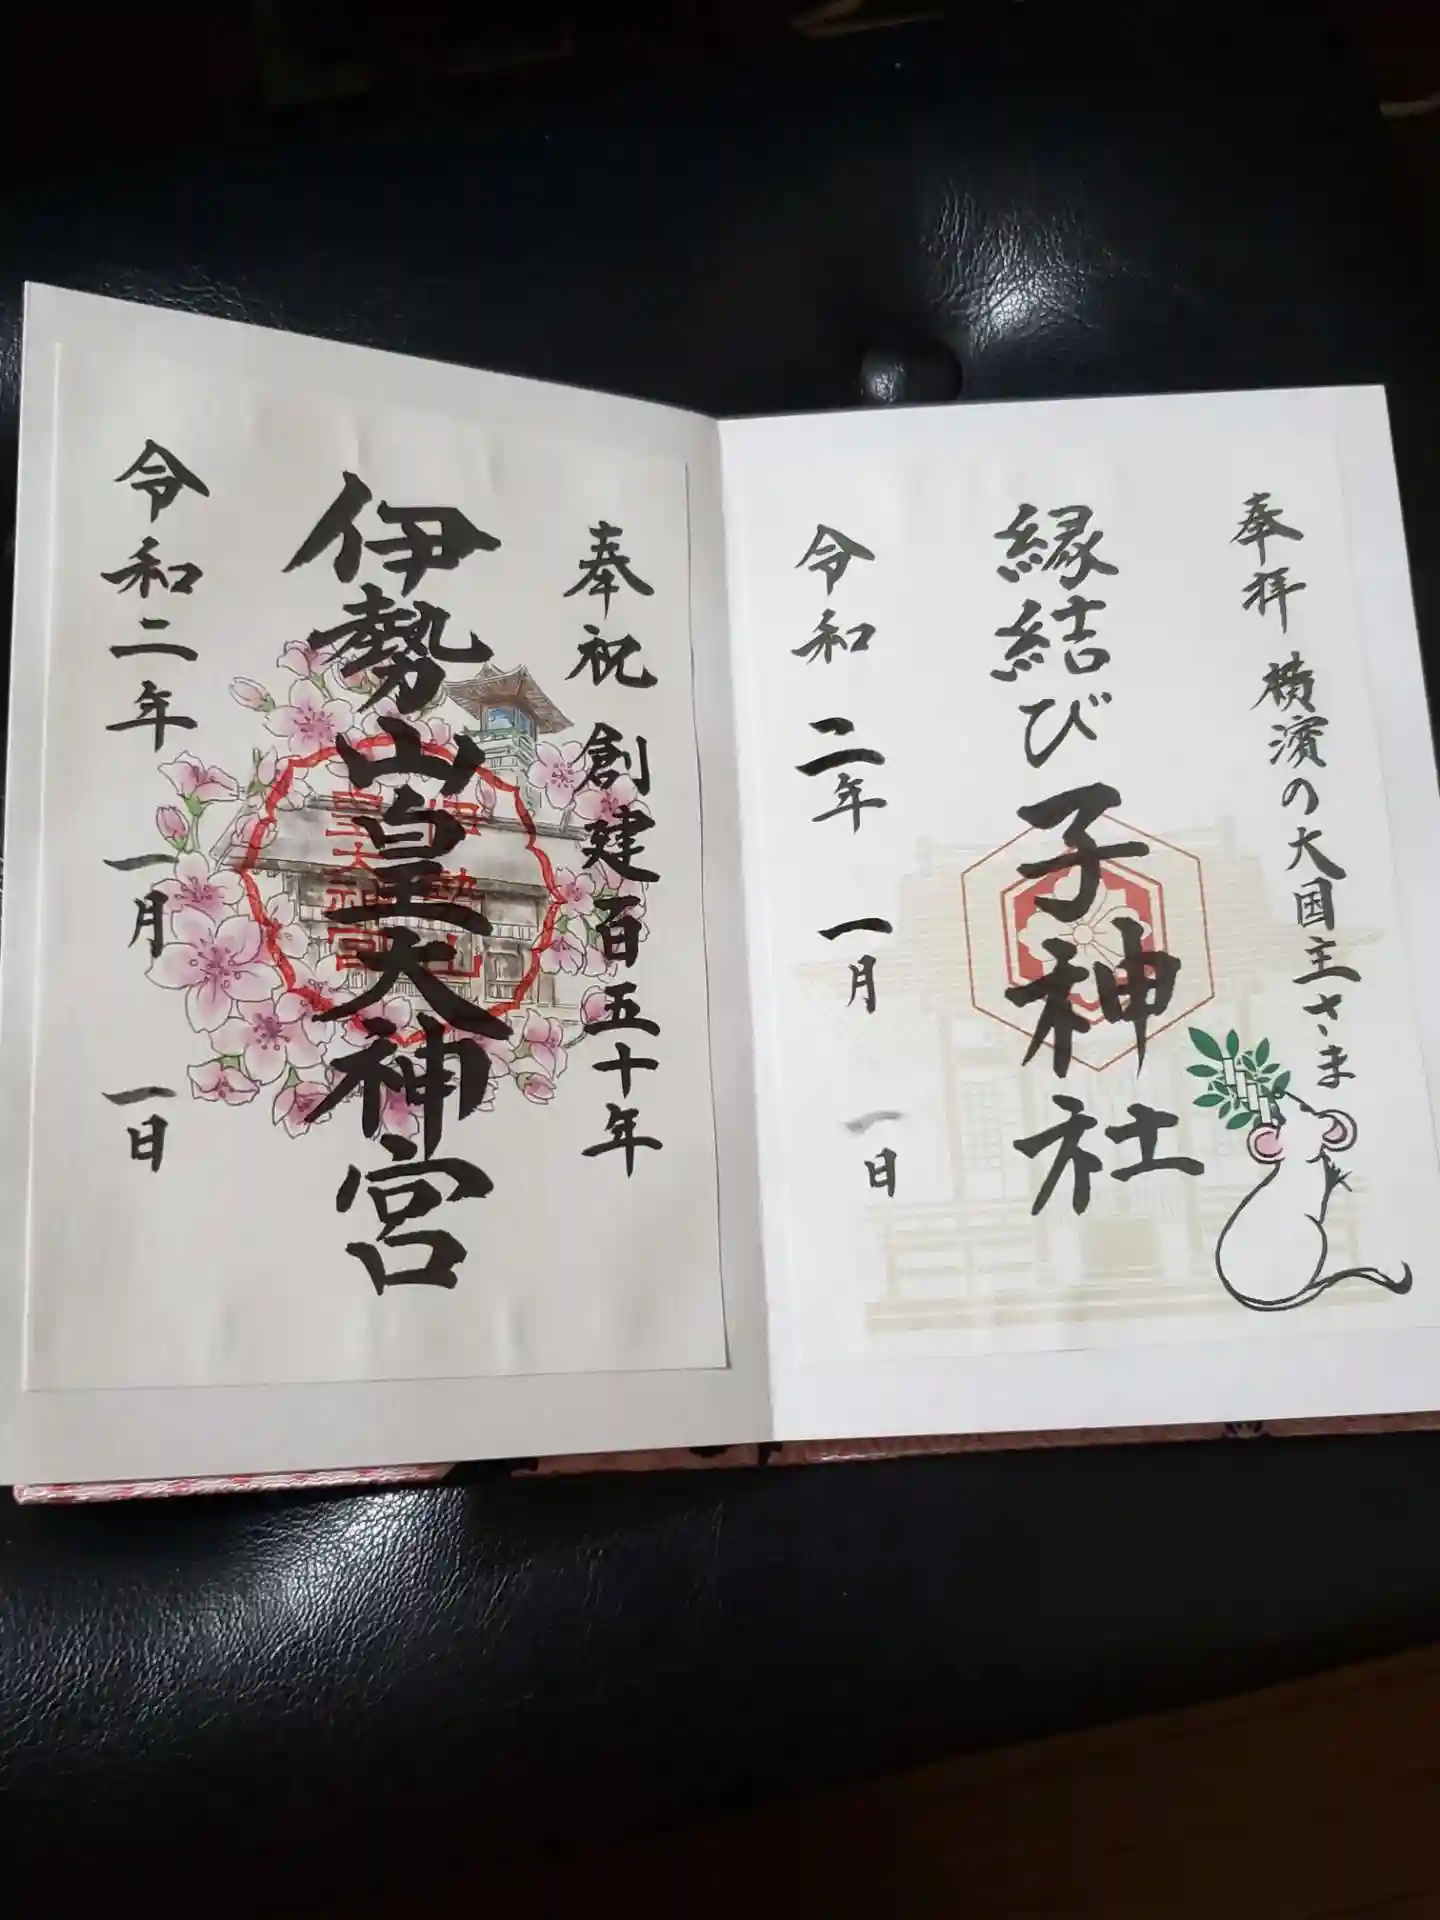 奉拝 横濱の大国主さま
縁結び 子神社
令和 二年 一月 一日
奉祝 創建百五十年
伊勢山皇大神宮
伊勢山
皇大神宮
令和二年 一月 一日